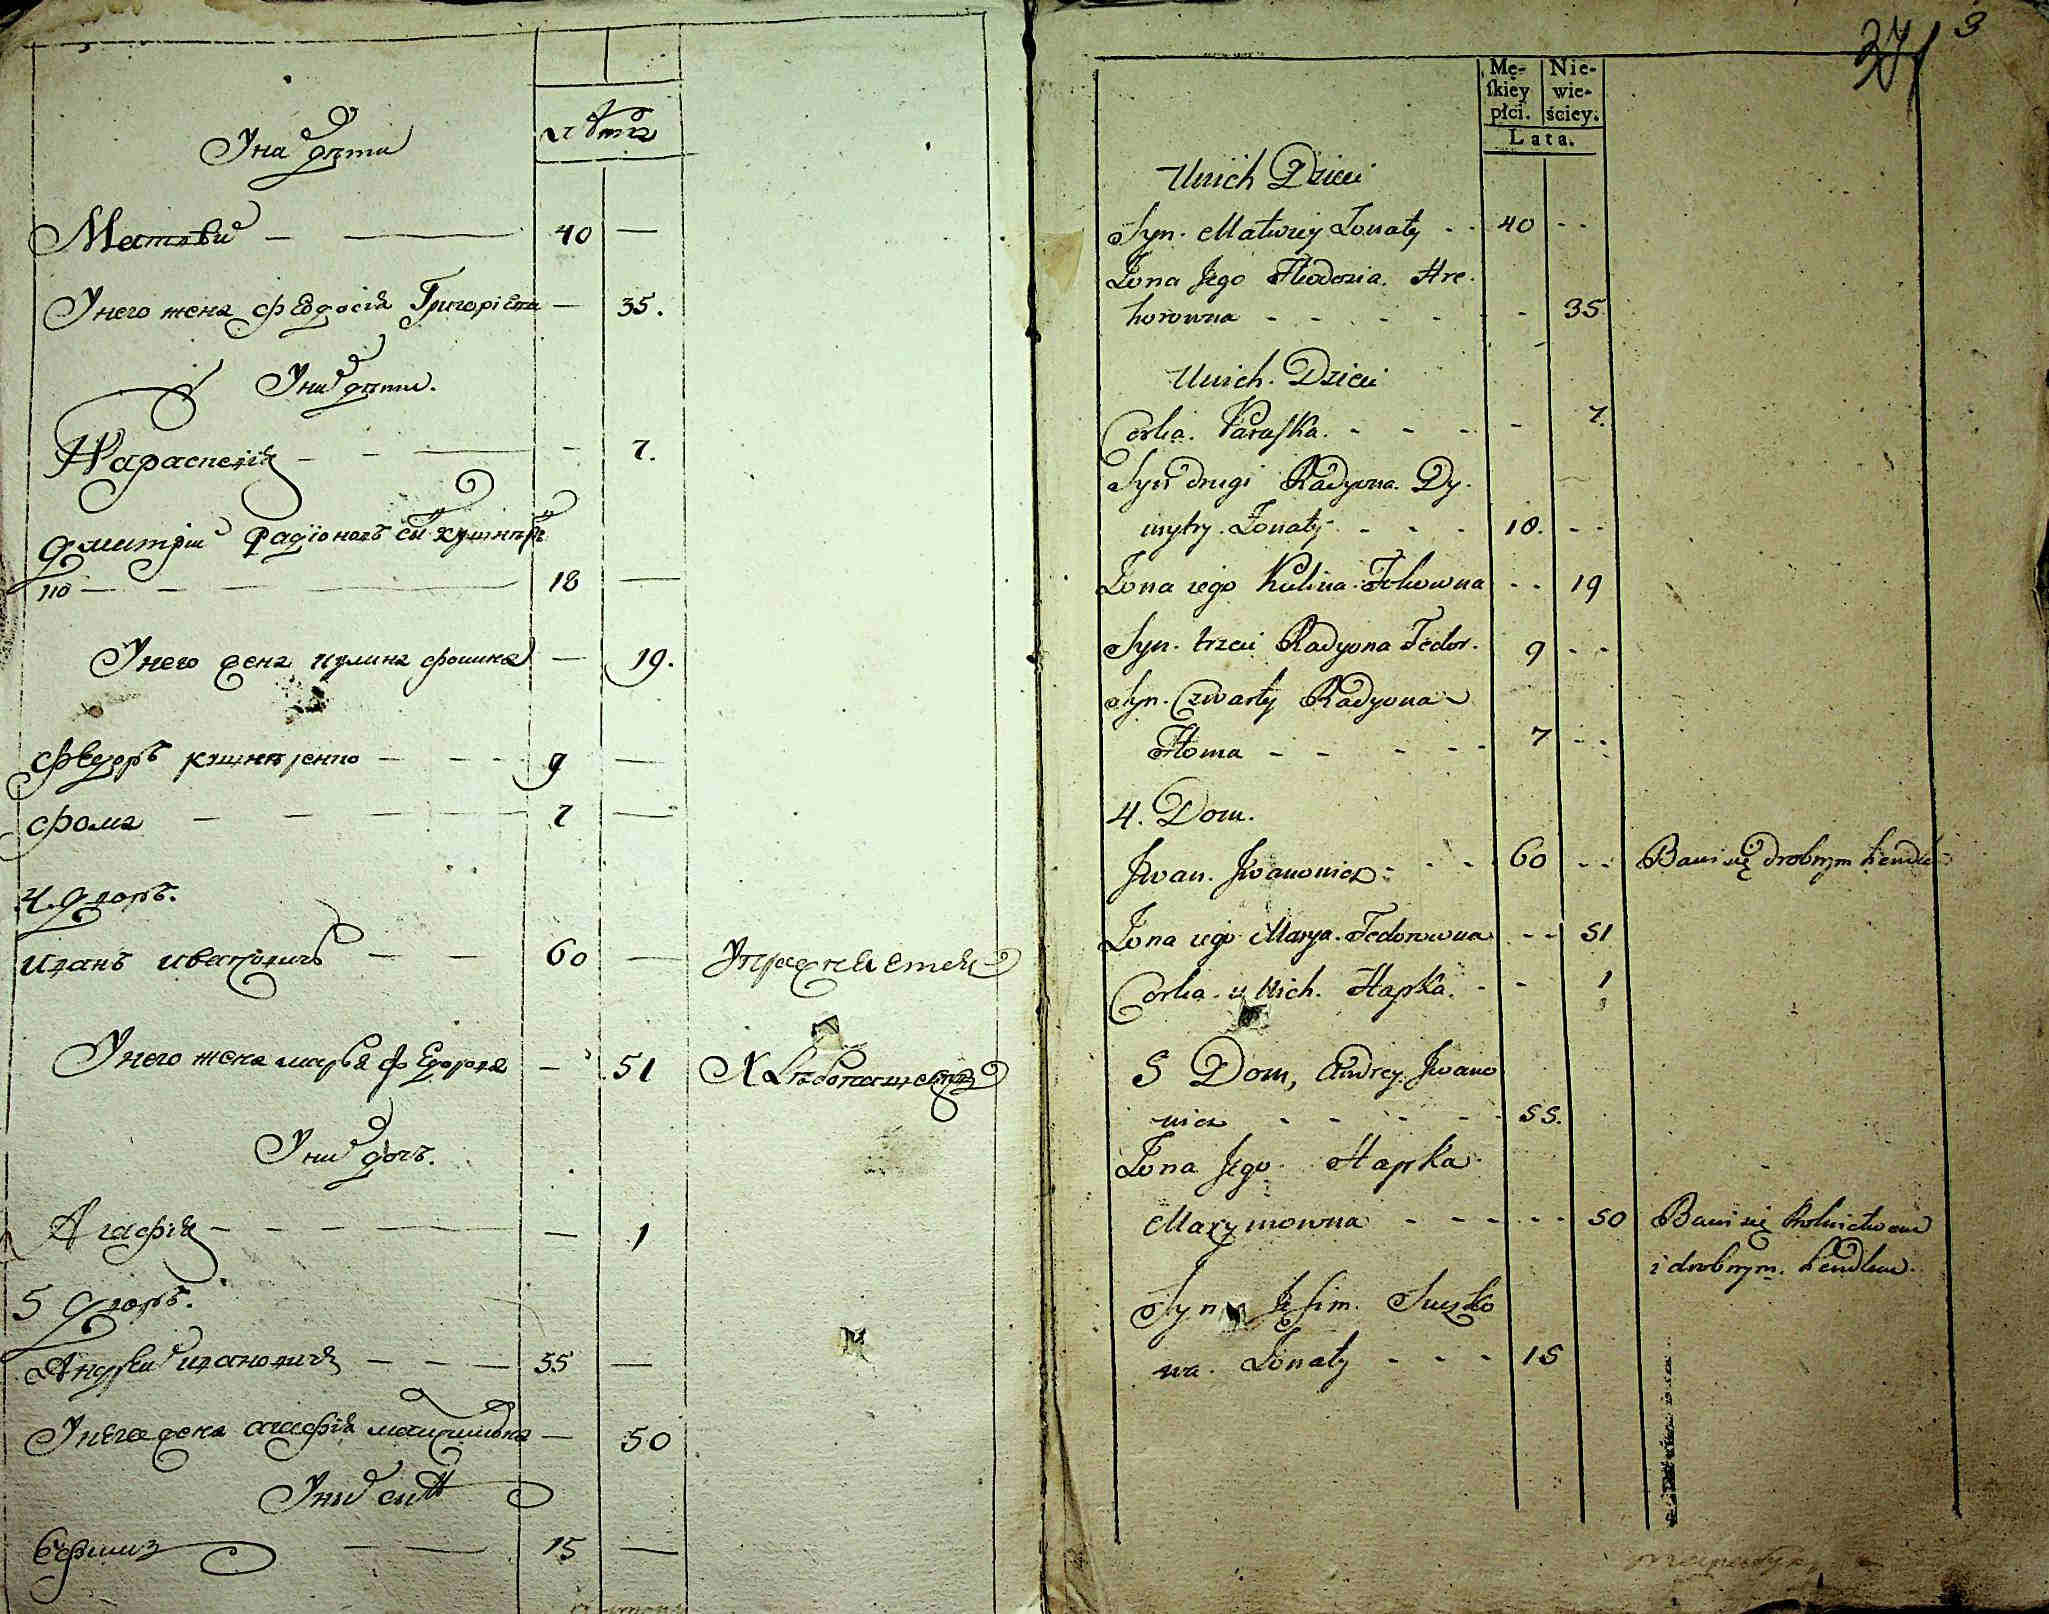 У них дети
лета
Матвей — — 40 —
У него жена Феодосия Григорiева — 35.
У них дети.
Параскевiя — — — 7.
Дмитрiй Радiоновъ сынъ Кушнѣрен
ко — — — 18 —
У него жена Кулина Фомина — 19.
Федоръ Кушнѣренко — — 9 —
Фома — — — — 7 —
4. дворъ.
Иванъ Ивановичъ — — 60 — Упражняется
У него жена Марья Федорова — 51 Хлебопашествомъ
У них дочь.
Агафiя — — — — 1
5 дворъ.
Андрей Ивановичъ — — — 55 —
У него жена Агафiя Максимовна — 50
У них сынъ
Ефимъ — — 15 —
37 3
Mę- Nie-
skiey wie-
płci. ściey.
Lata.
U nich Dzieci
Syn. Matwiey Żonaty - - 40 - -
Żona Jego Fiedozia. Hre-
horowna - - - - - - 35
U nich. Dzieci
Corka. Paraska. - - - - 7.
Syn drugi Radyona. Dy-
mytry. Żonaty - - - 18. - -
Żona iego Kulina Fokowna - - 19
Syn. trzeci Radyona Fedor. 9 - -
Syn. Czwarty Radyona
Homa - - - - - 7 - -
4. Dom.
Jwan. Jwanowicz - - - 60 - - Bawi się drobnym hendlem
Żona iego Marya. Fedorowna - - 51
Corka. u Nich. Hapka. - - 1
5 Dom, Andrey Jwano
wicz - - - - - 55.
Żona Jego. Hapka
Maxymowna - - - - - 50 Bawi się Rolnictwem
i drobnym. hendlem.
Syn Jefim. Suszko
wa. Żonaty - - - 15